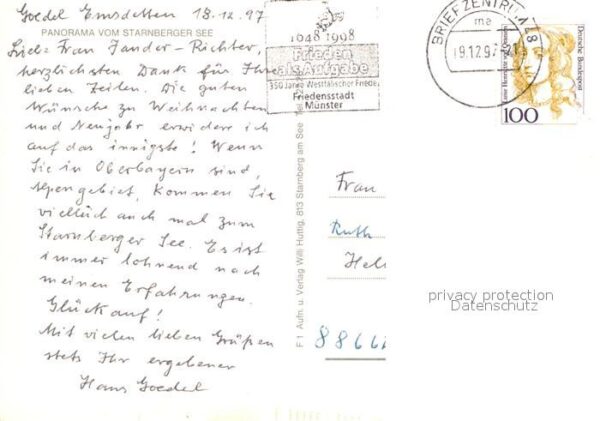 Goedel Emsdetten 18.12.97
PANORAMA VOM STARNBERGER SEE
Liebe Frau Jander-Richter,
herzlichsten Dank für Ihre
lieben Zeilen. Die guten
Wünsche zu Weihnachten
und Neujahr erwidere ich
auf das innigste! Wenn
Sie in Oberbayern sind,
Alpengebiet, kommen Sie
vielleicht auch mal zum
Starnberger See. Es ist
immer lohnend nach
meinen Erfahrungen.
Glückauf!
Mit vielen lieben Grüßen
stets Ihr ergebener
Hans Goedel
1648 1998
Frieden
als Aufgabe
350 Jahre Westfälischer Friede
Friedensstadt
Münster
BRIEFZENTRUM 48
19.12.97
Deutsche Bundespost
100
F 1 Aufn. u. Verlag Willi Huttig, 813 Starnberg am See Tel.
Frau
Ruth
Hel
8866
privacy protection
Datenschutz